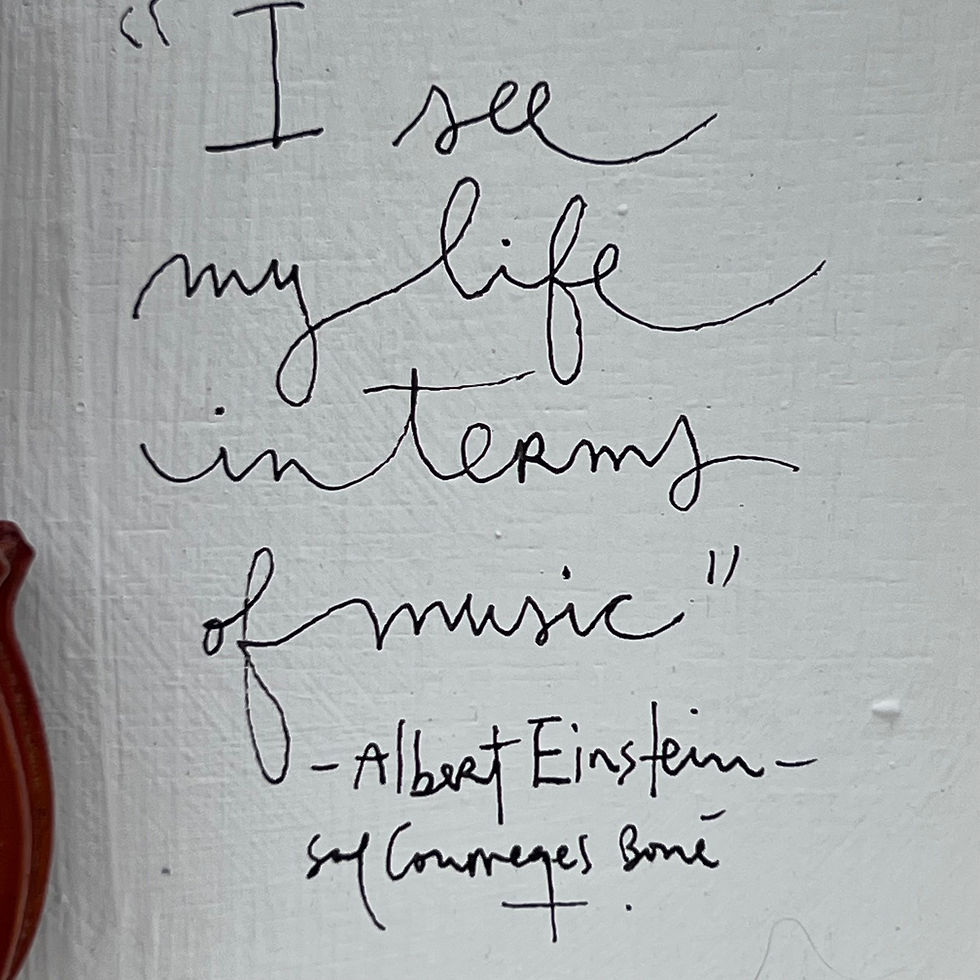 "I see
my life
in terms
of music"
- Albert Einstein -
Courreges Boné